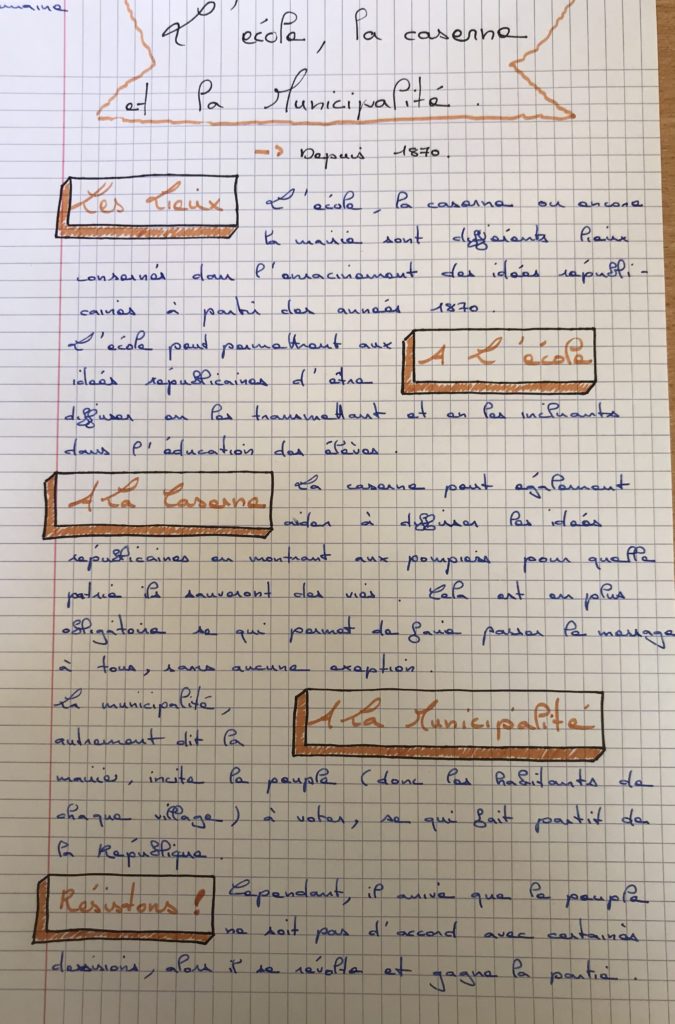 L'école, la caserne
et la Municipalité.
-> Depuis 1870.
Les Lieux
L'école, la caserne ou encore
la mairie sont différents lieux
consernés dans l'enracinement des idées républi-
caines à partir des années 1870.
L'école peut permettrent aux
A L'école
idées républicaines d'être
diffuser en les transmettant et en les incluants
dans l'éducation des élèves.
A La Caserne
La caserne peut également
aider à diffuser les idées
républicaines en montrant aux pompiers pour quelle
patrie ils sauveront des vies. Cela est en plus
obligatoire se qui permet de faire passer le message
à tous, sans aucune exeption.
La municipalité,
A La Municipalité
autrement dit la
mairie, incite le peuple (donc les habitants de
chaque village) à voter, se qui fait partit de
la République.
Résistons !
Cependant, il arrive que le peuple
ne soit pas d'accord avec certaines
dessisions, alors il se révolte et gagne la partie.